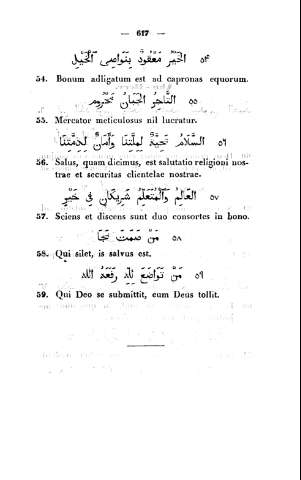 — 617 —
الخَيْر مَعْقُودٌ بِنَوَاصِى الخَيْلِ ٥٤
54. Bonum adligatum est ad capronas equorum.
التَّاجِرُ الجَبَانُ مَحْرُوم ٥٥
55. Mercator meticulosus nil lucratur.
السَّلَامُ تَحِيَّةٌ لِمِلَّتِنَا وَأَمَانٌ لِذِمَّتِنَا ٥٦
56. Salus, quam dicimus, est salutatio religioni nos-
trae et securitas clientelae nostrae.
العَالِمُ وَالْمُتَعَلِّمُ شَرِيكَانِ فِى خَيْرٍ ٥٧
57. Sciens et discens sunt duo consortes in bono.
مَنْ صَمَتَ نَجَا ٥٨
58. Qui silet, is salvus est.
مَنْ تَوَاضَعَ لِلّٰهِ رَفَعَهُ اللّٰه ٥٩
59. Qui Deo se submittit, eum Deus tollit.